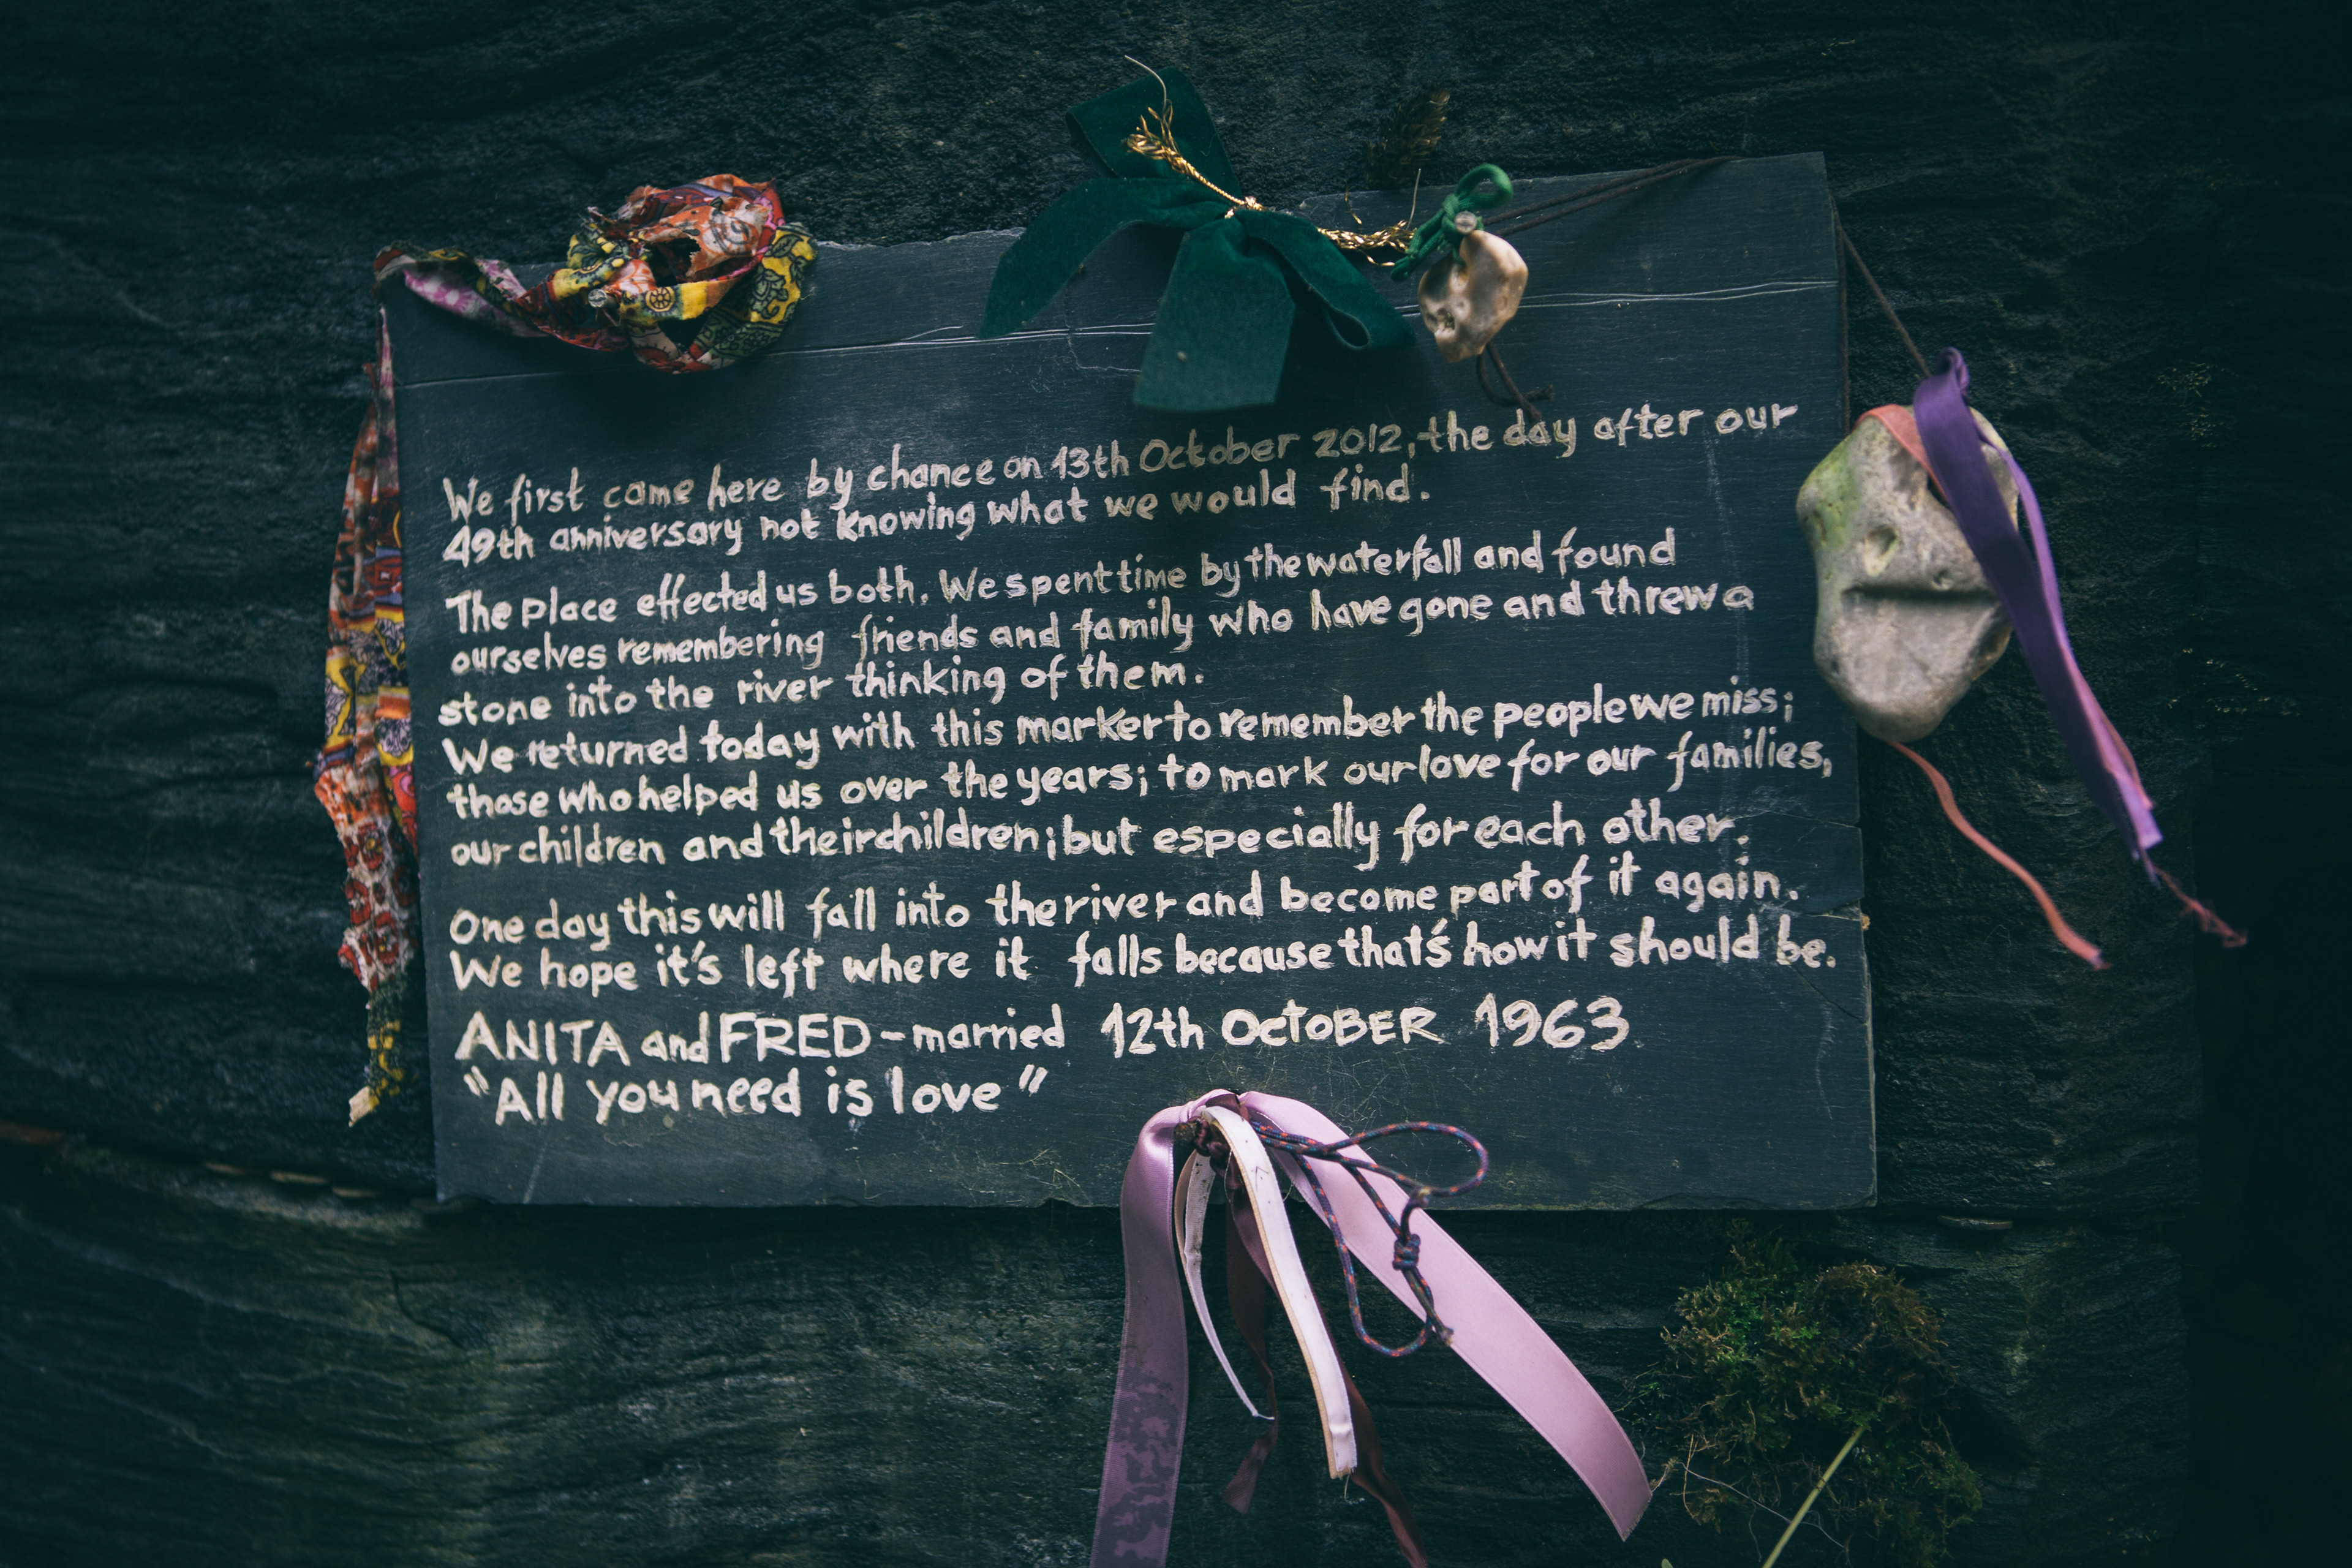 We first came here by chance on 13th October 2012, the day after our
49th anniversary not knowing what we would find.
The place effected us both. We spent time by the waterfall and found
ourselves remembering friends and family who have gone and threw a
stone into the river thinking of them.
We returned today with this marker to remember the people we miss;
those who helped us over the years; to mark our love for our families,
our children and their children; but especially for each other.
One day this will fall into the river and become part of it again.
We hope it's left where it falls because that's how it should be.
ANITA and FRED - married 12th OCTOBER 1963
"All you need is love"